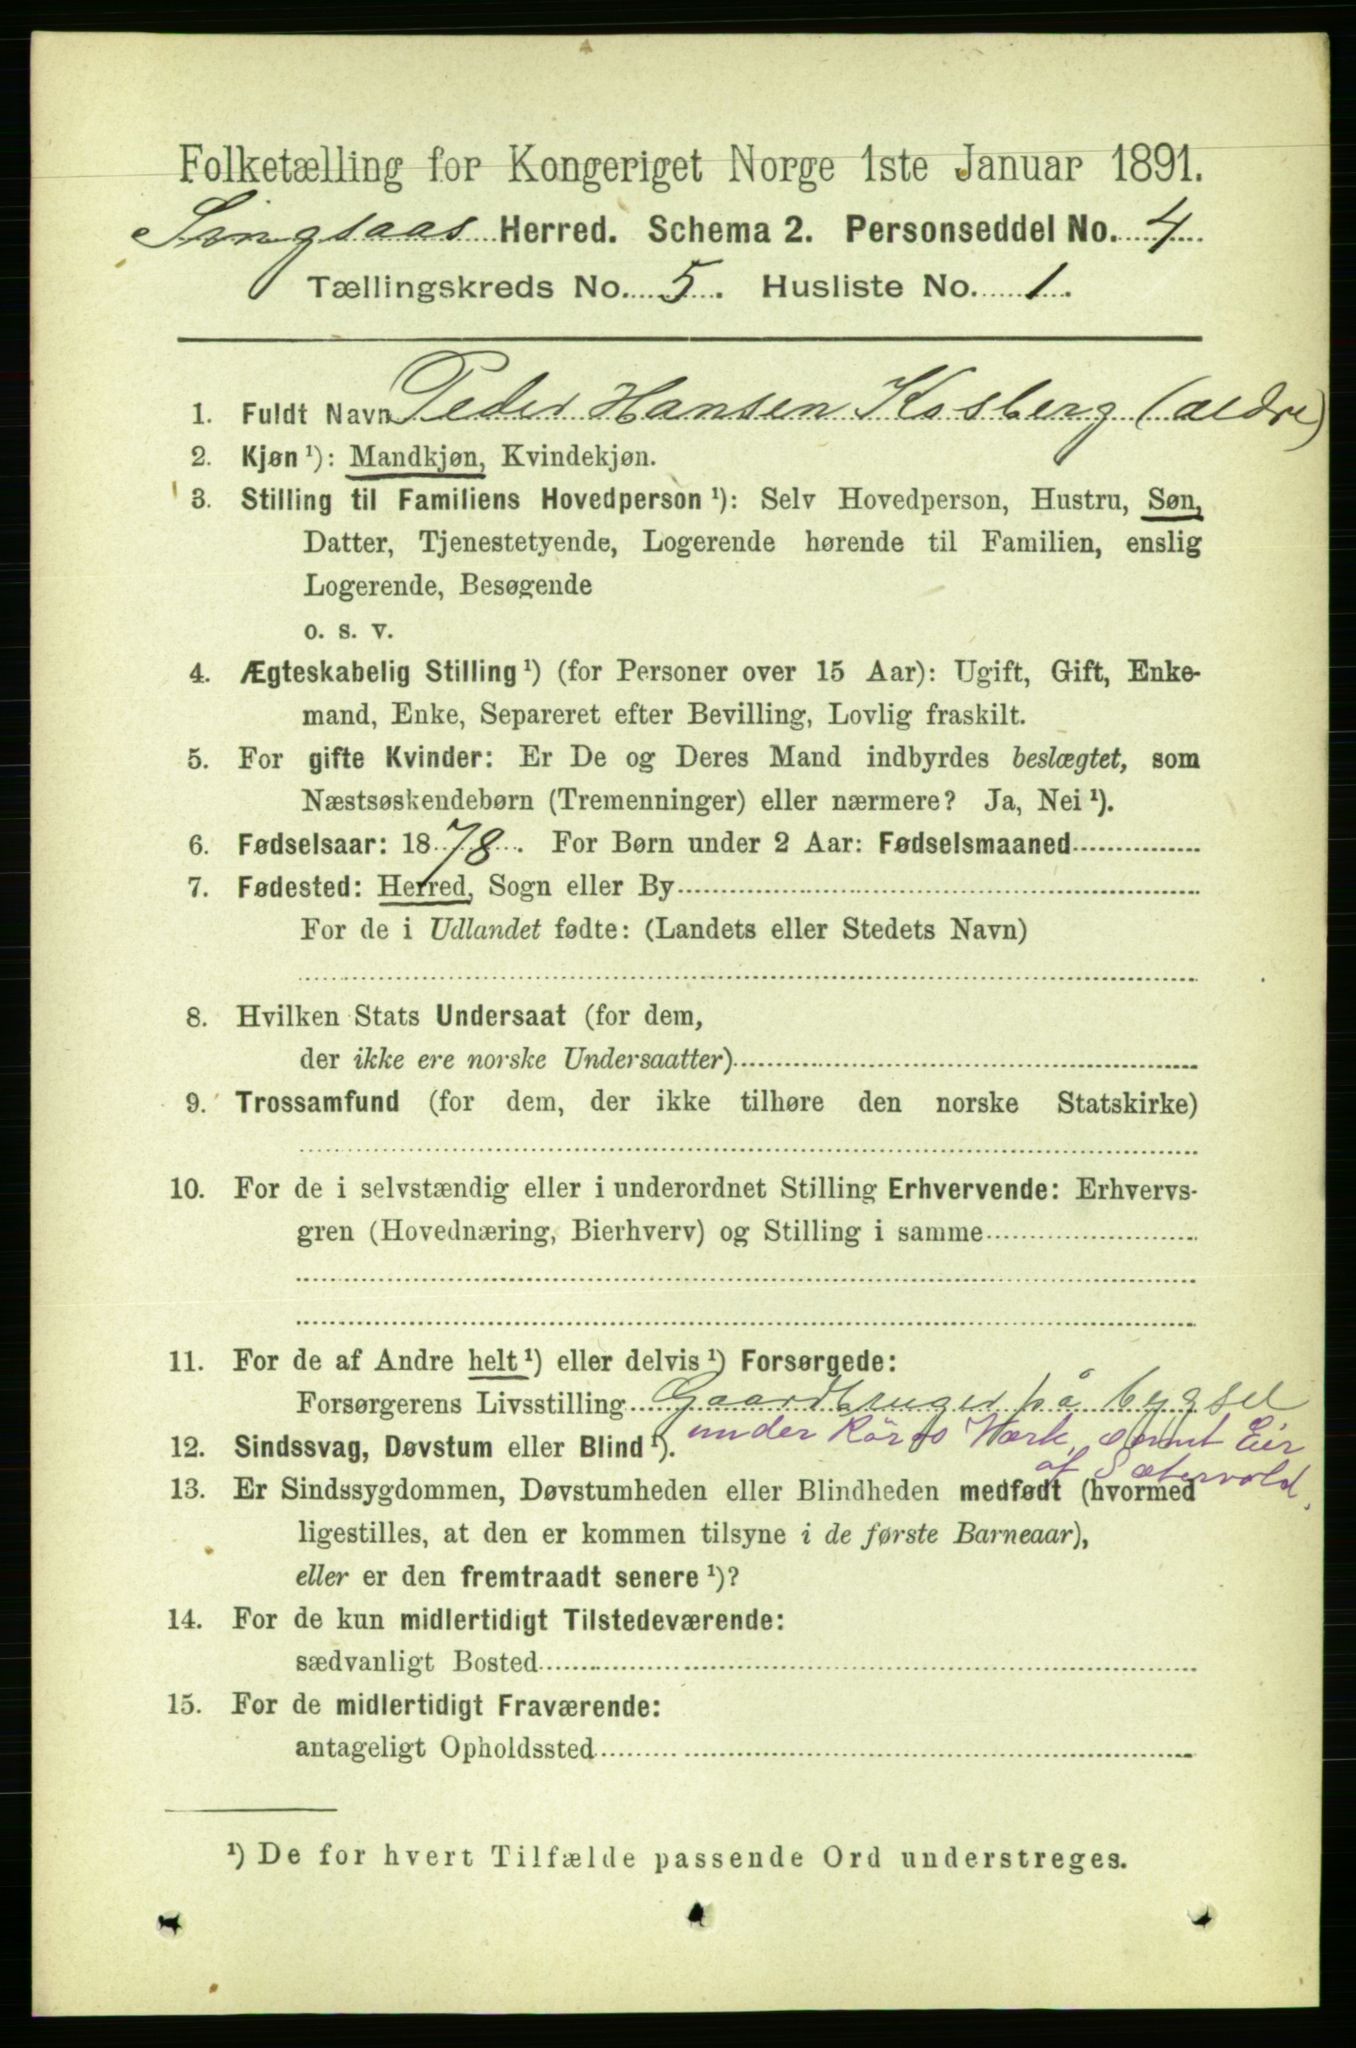 Folketælling for Kongeriget Norge 1ste Januar 1891.
Singsaas Herred. Schema 2. Personseddel No. 4
Tællingskreds No. 5. Husliste No. 1.
1. Fuldt Navn Peder Hansen Kosberg (ældre)
2. Kjøn ¹): Mandkjøn, Kvindekjøn.
3. Stilling til Familiens Hovedperson ¹): Selv Hovedperson, Hustru, Søn,
Datter, Tjenestetyende, Logerende hørende til Familien, enslig
Logerende, Besøgende
o. s. v.
4. Ægteskabelig Stilling ¹) (for Personer over 15 Aar): Ugift, Gift, Enke-
mand, Enke, Separeret efter Bevilling, Lovlig fraskilt.
5. For gifte Kvinder: Er De og Deres Mand indbyrdes beslægtet, som
Næstsøskendebørn (Tremenninger) eller nærmere? Ja, Nei ¹).
6. Fødselsaar: 1878. For Børn under 2 Aar: Fødselsmaaned
7. Fødested: Herred, Sogn eller By
For de i Udlandet fødte: (Landets eller Stedets Navn)
8. Hvilken Stats Undersaat (for dem,
der ikke ere norske Undersaatter)
9. Trossamfund (for dem, der ikke tilhøre den norske Statskirke)
10. For de i selvstændig eller i underordnet Stilling Erhvervende: Erhvervs-
gren (Hovednæring, Bierhverv) og Stilling i samme
11. For de af Andre helt ¹) eller delvis ¹) Forsørgede:
Forsørgerens Livsstilling Gaardbruger på bygsel
under Röros Værk, samt Eier
12. Sindssvag, Døvstum eller Blind ¹).
af Sætervold.
13. Er Sindssygdommen, Døvstumheden eller Blindheden medfødt (hvormed
ligestilles, at den er kommen tilsyne i de første Barneaar),
eller er den fremtraadt senere ¹)?
14. For de kun midlertidigt Tilstedeværende:
sædvanligt Bosted
15. For de midlertidigt Fraværende:
antageligt Opholdssted
¹) De for hvert Tilfælde passende Ord understreges.